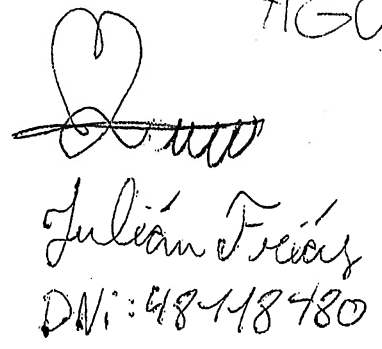 Julián Frías
DNi: 48118480